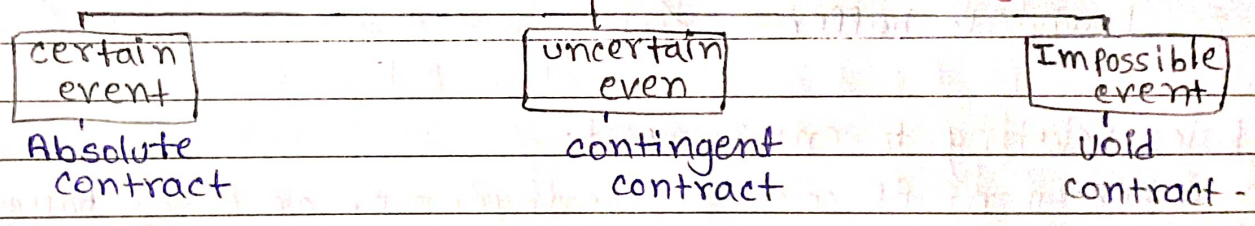 certain
event
Absolute
contract
uncertain
even
contingent
contract
Impossible
event
void
contract -